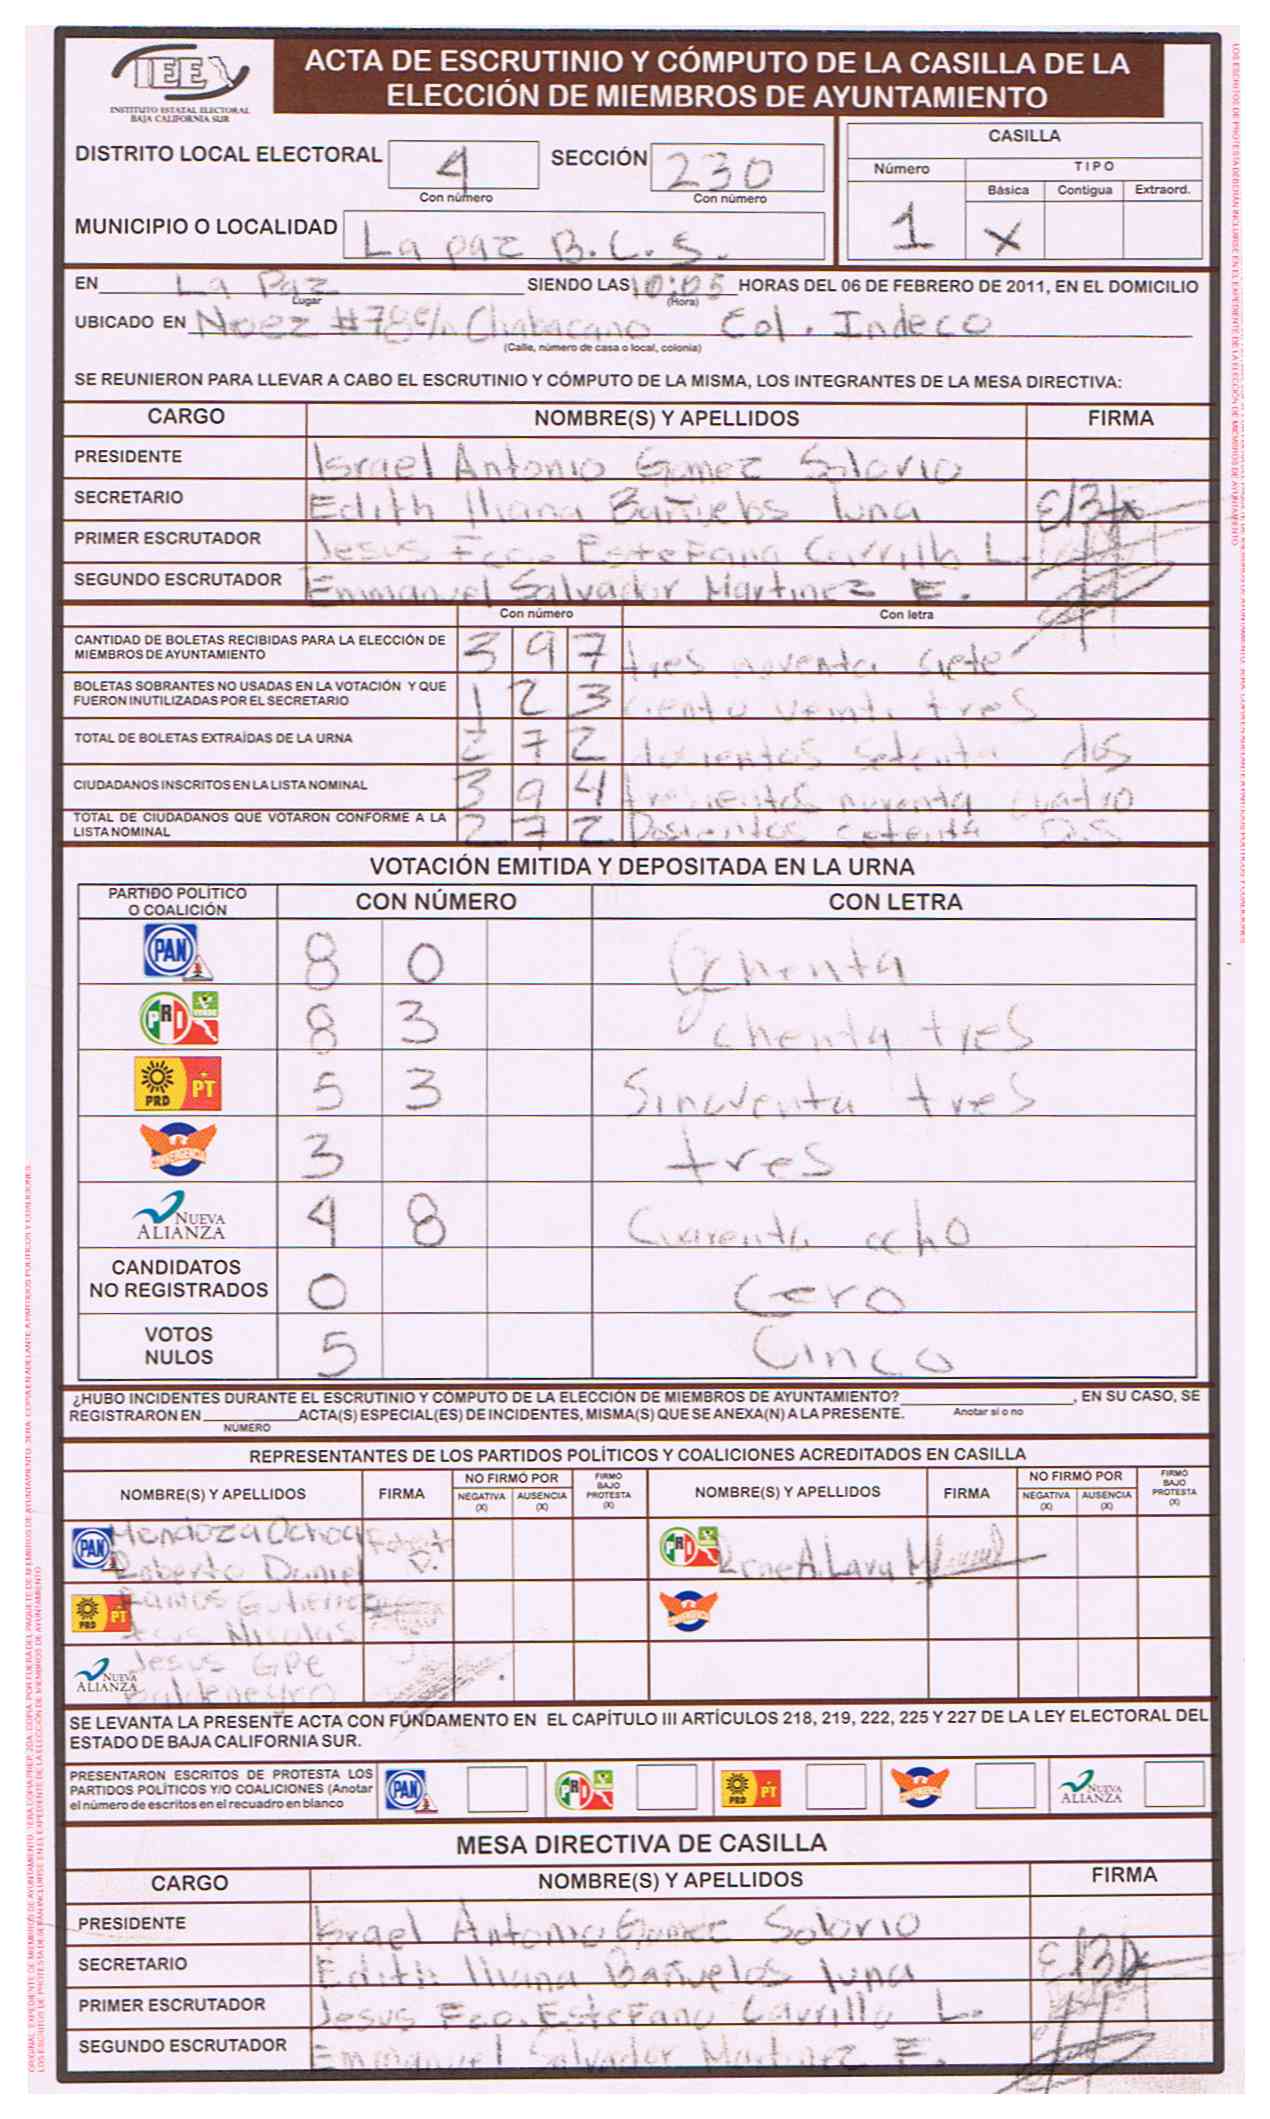 IEE
INSTITUTO ESTATAL ELECTORAL
BAJA CALIFORNIA SUR
ACTA DE ESCRUTINIO Y CÓMPUTO DE LA CASILLA DE LA
ELECCIÓN DE MIEMBROS DE AYUNTAMIENTO
DISTRITO LOCAL ELECTORAL 4 SECCIÓN 230
Con número Con número
MUNICIPIO O LOCALIDAD La paz B.C.S.
CASILLA
Número TIPO
Básica Contigua Extraord.
1 X
EN La Paz SIENDO LAS 10:05 HORAS DEL 06 DE FEBRERO DE 2011, EN EL DOMICILIO
Lugar (Hora)
UBICADO EN #78 Chabacano Col. Indeco
(Calle, número de casa o local, colonia)
SE REUNIERON PARA LLEVAR A CABO EL ESCRUTINIO Y CÓMPUTO DE LA MISMA, LOS INTEGRANTES DE LA MESA DIRECTIVA:
CARGO NOMBRE(S) Y APELLIDOS FIRMA
PRESIDENTE Israel Antonio Gomez Solorio
SECRETARIO Edith Iliana Bañuelos luna
PRIMER ESCRUTADOR Jesus Fco. Estefano Carrillo L.
SEGUNDO ESCRUTADOR Emmanuel Salvador Martinez E.
Con número Con letra
CANTIDAD DE BOLETAS RECIBIDAS PARA LA ELECCIÓN DE
MIEMBROS DE AYUNTAMIENTO 397 tres noventa siete
BOLETAS SOBRANTES NO USADAS EN LA VOTACIÓN Y QUE
FUERON INUTILIZADAS POR EL SECRETARIO 123 ciento veinti tres
TOTAL DE BOLETAS EXTRAÍDAS DE LA URNA 272 dosientos setenta dos
CIUDADANOS INSCRITOS EN LA LISTA NOMINAL 394 tresientos noventa cuatro
TOTAL DE CIUDADANOS QUE VOTARON CONFORME A LA
LISTA NOMINAL 272 Dosientos cetenta
VOTACIÓN EMITIDA Y DEPOSITADA EN LA URNA
PARTIDO POLÍTICO
O COALICIÓN CON NÚMERO CON LETRA
PAN 80 Ochenta
PRI VERDE 83 Ochenta tres
PRD PT 53 Sincuenta tres
CONVERGENCIA 3 tres
NUEVA
ALIANZA 48 Cuarenta ocho
CANDIDATOS
NO REGISTRADOS 0 Cero
VOTOS
NULOS 5 Cinco
¿HUBO INCIDENTES DURANTE EL ESCRUTINIO Y CÓMPUTO DE LA ELECCIÓN DE MIEMBROS DE AYUNTAMIENTO? , EN SU CASO, SE
REGISTRARON EN ACTA(S) ESPECIAL(ES) DE INCIDENTES, MISMA(S) QUE SE ANEXA(N) A LA PRESENTE. Anotar si o no
NÚMERO
REPRESENTANTES DE LOS PARTIDOS POLÍTICOS Y COALICIONES ACREDITADOS EN CASILLA
NOMBRE(S) Y APELLIDOS FIRMA NO FIRMÓ POR NEGATIVA (X) AUSENCIA (X) FIRMÓ BAJO PROTESTA (X) NOMBRE(S) Y APELLIDOS FIRMA NO FIRMÓ POR NEGATIVA (X) AUSENCIA (X) FIRMÓ BAJO PROTESTA (X)
PAN Mendoza Ochoa
Roberto Daniel
PRI Rene A. Lara M
PRD PT Ramos Gutierrez
Jesus Nicolas
CONVERGENCIA
NUEVA
ALIANZA Jesus GPE
Baldenegro
SE LEVANTA LA PRESENTE ACTA CON FUNDAMENTO EN EL CAPÍTULO III ARTÍCULOS 218, 219, 222, 225 Y 227 DE LA LEY ELECTORAL DEL
ESTADO DE BAJA CALIFORNIA SUR.
PRESENTARON ESCRITOS DE PROTESTA LOS
PARTIDOS POLÍTICOS Y/O COALICIONES (Anotar
el número de escritos en el recuadro en blanco
PAN PRI PRD PT CONVERGENCIA NUEVA ALIANZA
MESA DIRECTIVA DE CASILLA
CARGO NOMBRE(S) Y APELLIDOS FIRMA
PRESIDENTE Israel Antonio Gomez Solorio
SECRETARIO Edith Iliana Bañuelos luna
PRIMER ESCRUTADOR Jesus Fco. Estefano Carrillo L.
SEGUNDO ESCRUTADOR Emmanuel Salvador Martinez E.